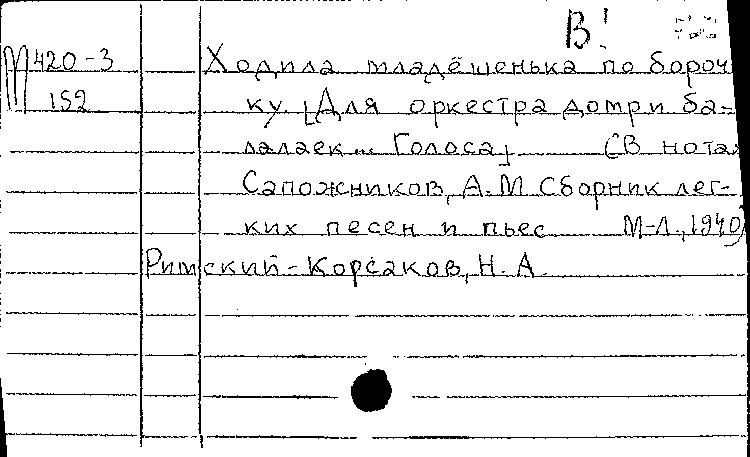 В!
М 420-3 Ходила младёшенька по бороч
152 ку. [Для оркестра домр и ба-
лалаек... Голоса] (В нотах
Сапожников, А.М Сборник лег-
ких песен и пьес М-Л., 1940)
Римский-Корсаков, Н. А